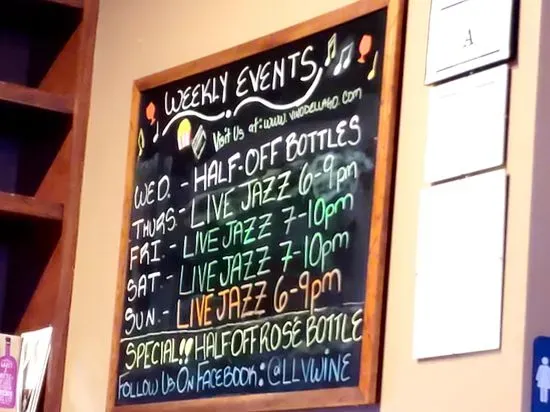 WEEKLY EVENTS
Visit Us at: www.VINODELLAGO.com
WED. - HALF-OFF BOTTLES
THURS. - LIVE JAZZ 6-9pm
FRI. - LIVE JAZZ 7-10pm
SAT. - LIVE JAZZ 7-10pm
SUN. - LIVE JAZZ 6-9pm
SPECIAL!! HALF OFF ROSÉ BOTTLE
FOLLOW US ON FACEBOOK: @LLVWINE
A